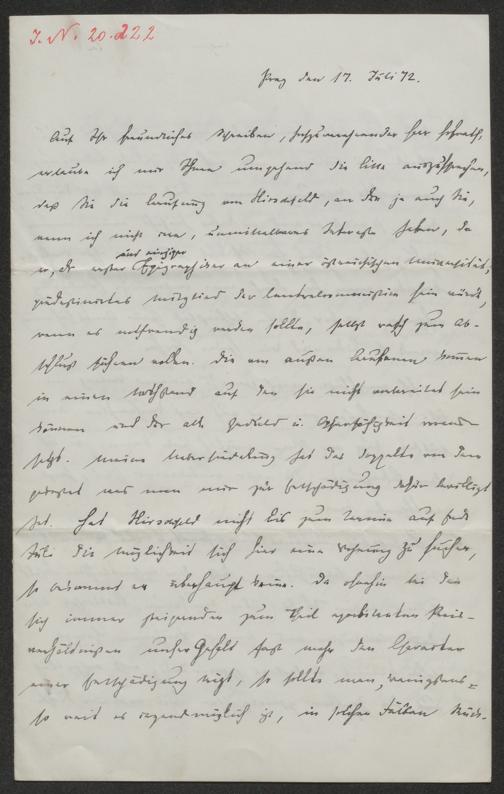 I. N. 20.222
Prag den 17. Juli 72.
Auf Ihr freundliches Schreiben, hochzuverehrender Herr Hofrath,
erlaube ich mir Ihnen umgehend die Bitte auszusprechen,
daß Sie die Berufung von Hirschfeld, an der ja auch Sie,
wenn ich nicht irre, unmittelbares Interesse haben, da
er, als erster und einziger Epigraphiker an einer österreichischen Universität,
prädestinirtes Mitglied der Centralcommission sein würde,
wenn es nothwendig werden sollte, selbst rasch zum Ab-
schluß führen wollen. Die von außen Berufenen kommen
in einen Zustand auf den sie nicht vorbereitet sein
können und der alle Geduld u. Opferfähigkeit voraus
setzt. Meine Uebersiedelung hat das doppelte von dem
gekostet was man mir zur Entschädigung dafür bewilligt
hat. Hat Hirschfeld nicht bis zum Termin auf Ende
Juli die Möglichkeit sich hier eine Wohnung zu suchen,
so bekommt er überhaupt keine. Da ohnehin bei den
sich immer steigenden zum Theil exorbitanten Preis-
verhältnissen unser Gehalt fast mehr den Charakter
einer Entschädigung trägt, so sollte man, wenigstens
so weit es irgend möglich ist, in solchen Fällen Rück-